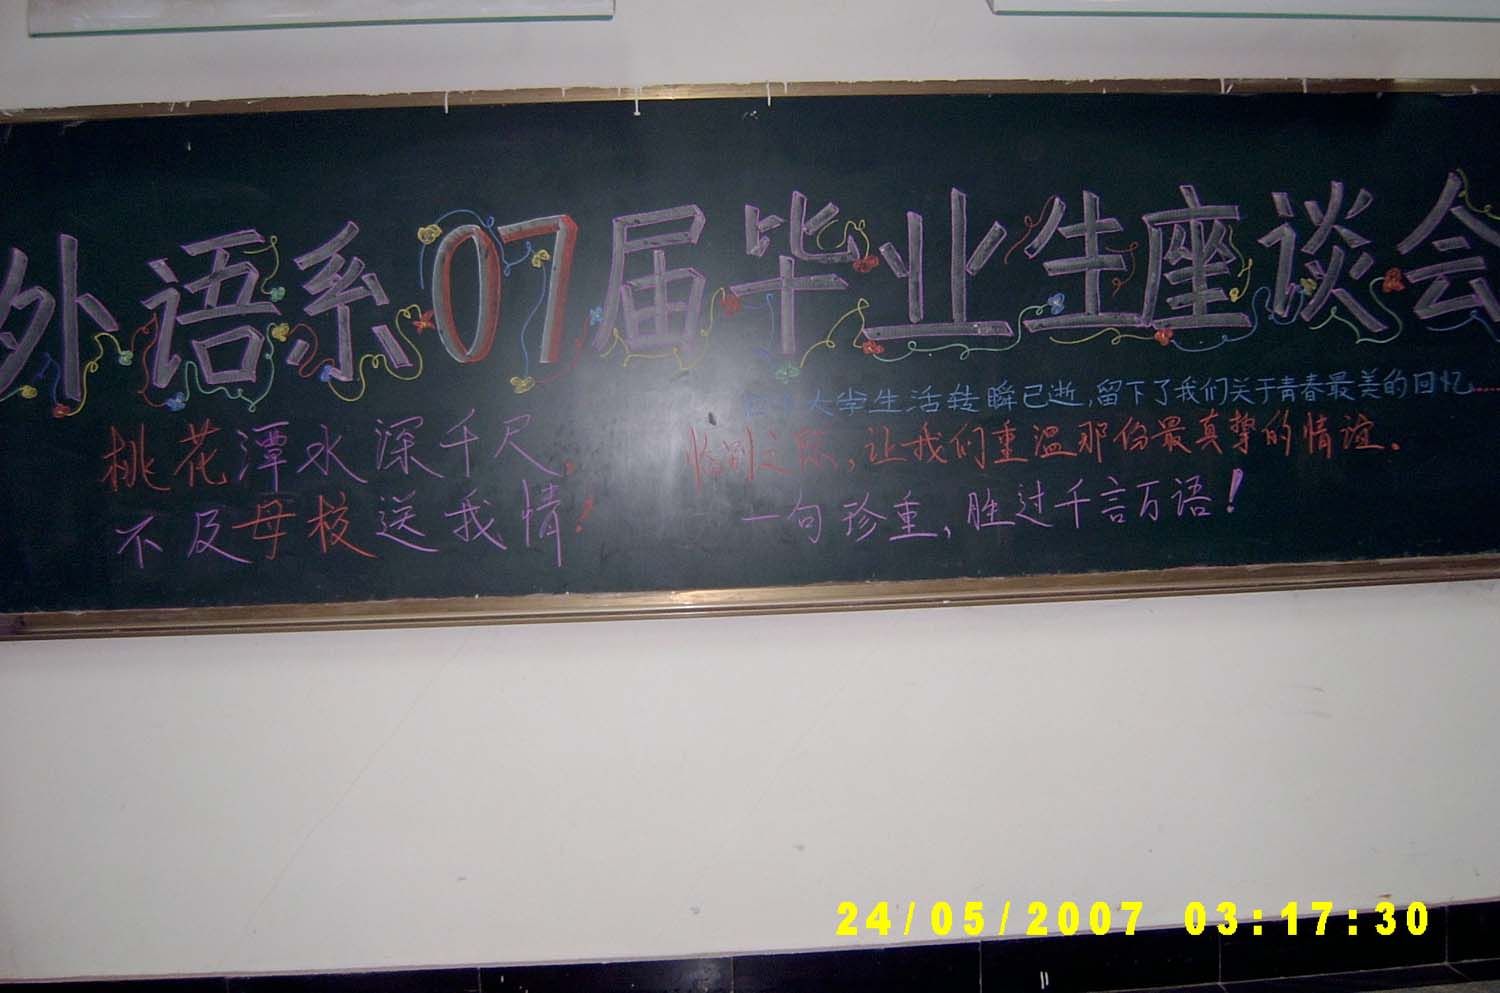 外语系07届毕业生座谈会
桃花潭水深千尺,
不及母校送我情!
大学生活转瞬已逝,留下了我们关于青春最美的回忆......
临别之际,让我们重温那份最真挚的情谊.
一句珍重,胜过千言万语!
24/05/2007 03:17:30